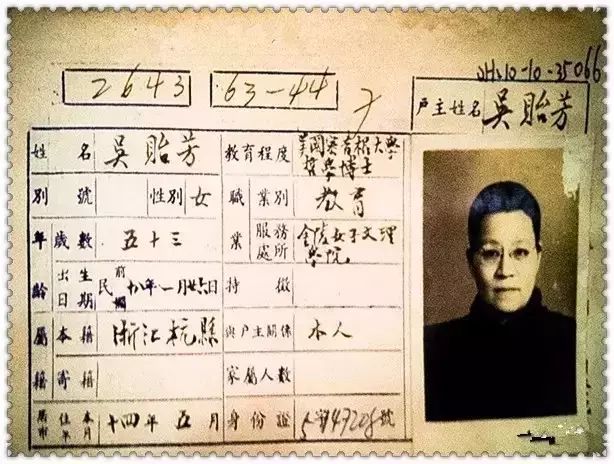 2643 63-44
JH10-10-35066
戶主姓名 吳貽芳
姓名 吳貽芳 教育程度 美國密省根大學
哲學博士
別號 性別 女 職業 業別 教育
年齡 歲數 五十三 服務處所 金陵女子文理
學院
出生日期 民前 十八年一月廿六日 特徵
屬籍 本籍 浙江杭縣 與戶主關係 本人
寄籍 家屬人數
居住本市年月 十四年五月 身份證 字47208號